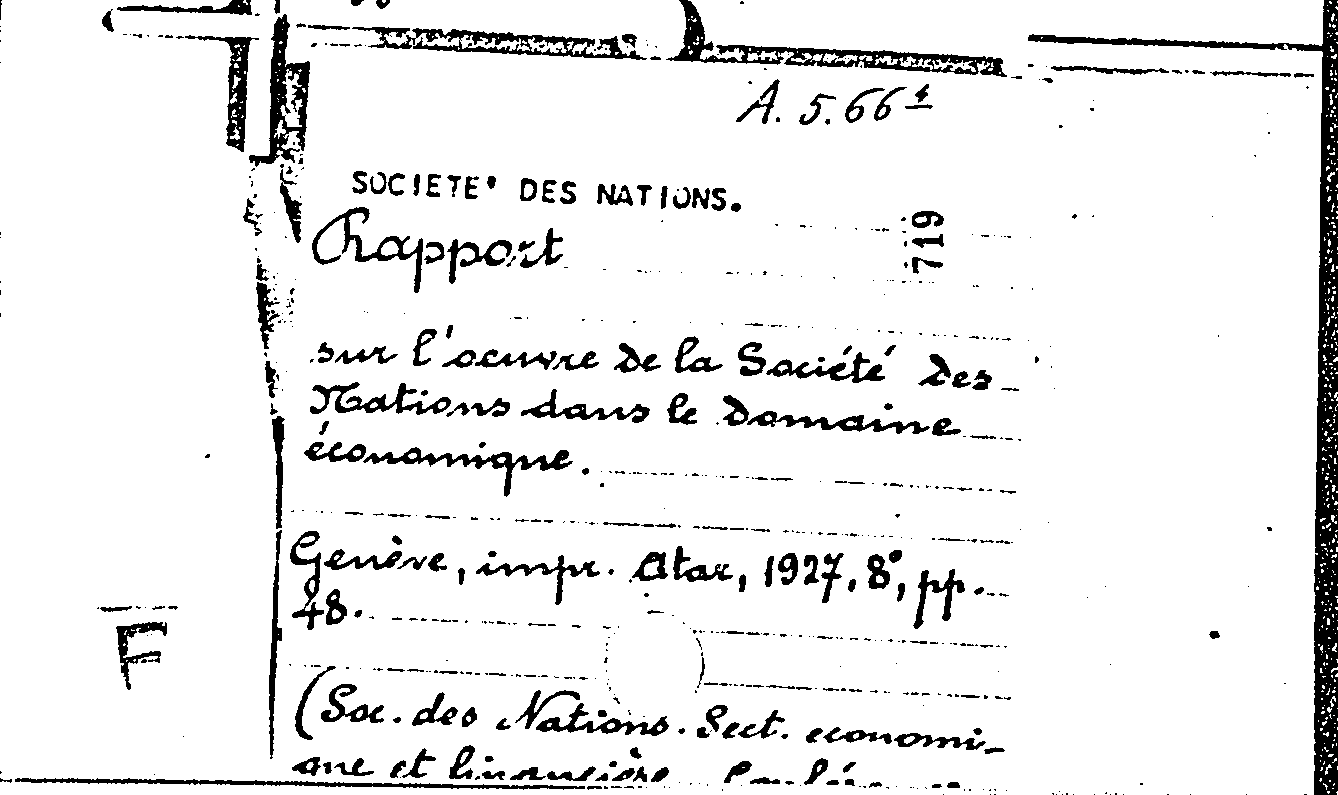 A. 5. 66⁴
SOCIETE' DES NATIONS.
719
Rapport
sur l'oeuvre de la Société des
Nations dans le domaine
économique.
Genève, impr. Atar, 1927. 8°, pp.
48.
F
(Soc. des Nations. Sect. economi-
que et financière